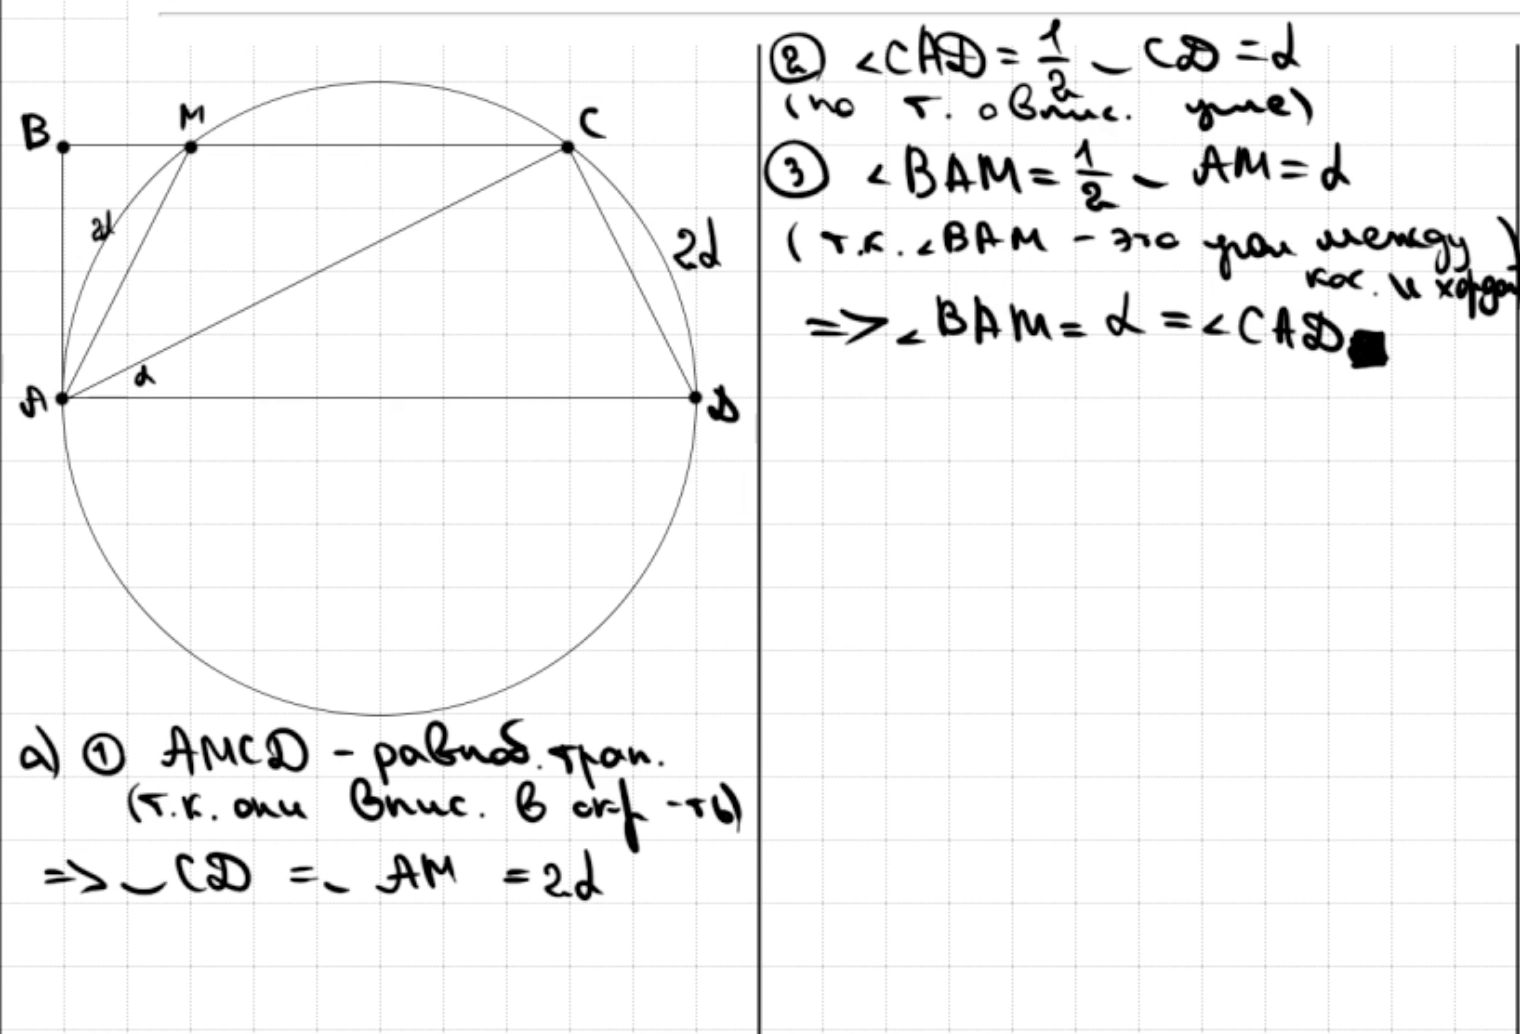 B
M
C
2α
2α
A
α
D
а) ① AMCD - равноб. трап.
(т.к. они впис. в окр-ть)
=> ◡ CD = ◡ AM = 2α
② ∠CAD = 1/2 ◡ CD = α
(по т. о впис. угле)
③ ∠BAM = 1/2 ◡ AM = α
(т.к. ∠BAM - это угол между
кас. и хордой)
=> ∠BAM = α = ∠CAD